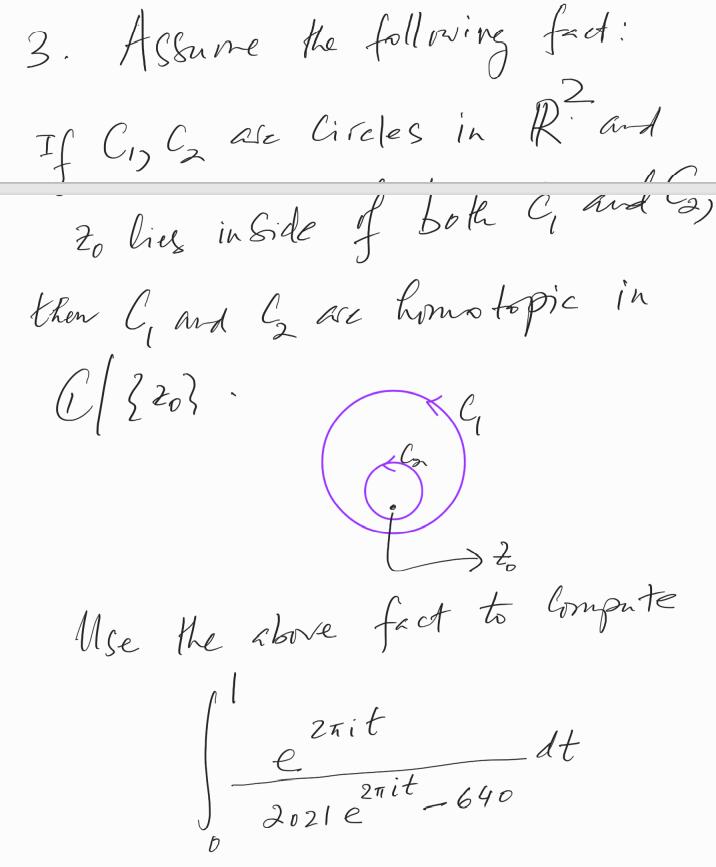 3. Assume the following fact:
If C₁, C₂ are circles in ℝ² and
z₀ lies inside of both C₁ and C₂,
then C₁ and C₂ are homotopic in
ℂ/{z₀}.
C₁
C₂
z₀
Use the above fact to compute
∫₀¹ e^{2πit} / (2021 e^{2πit} − 640) dt